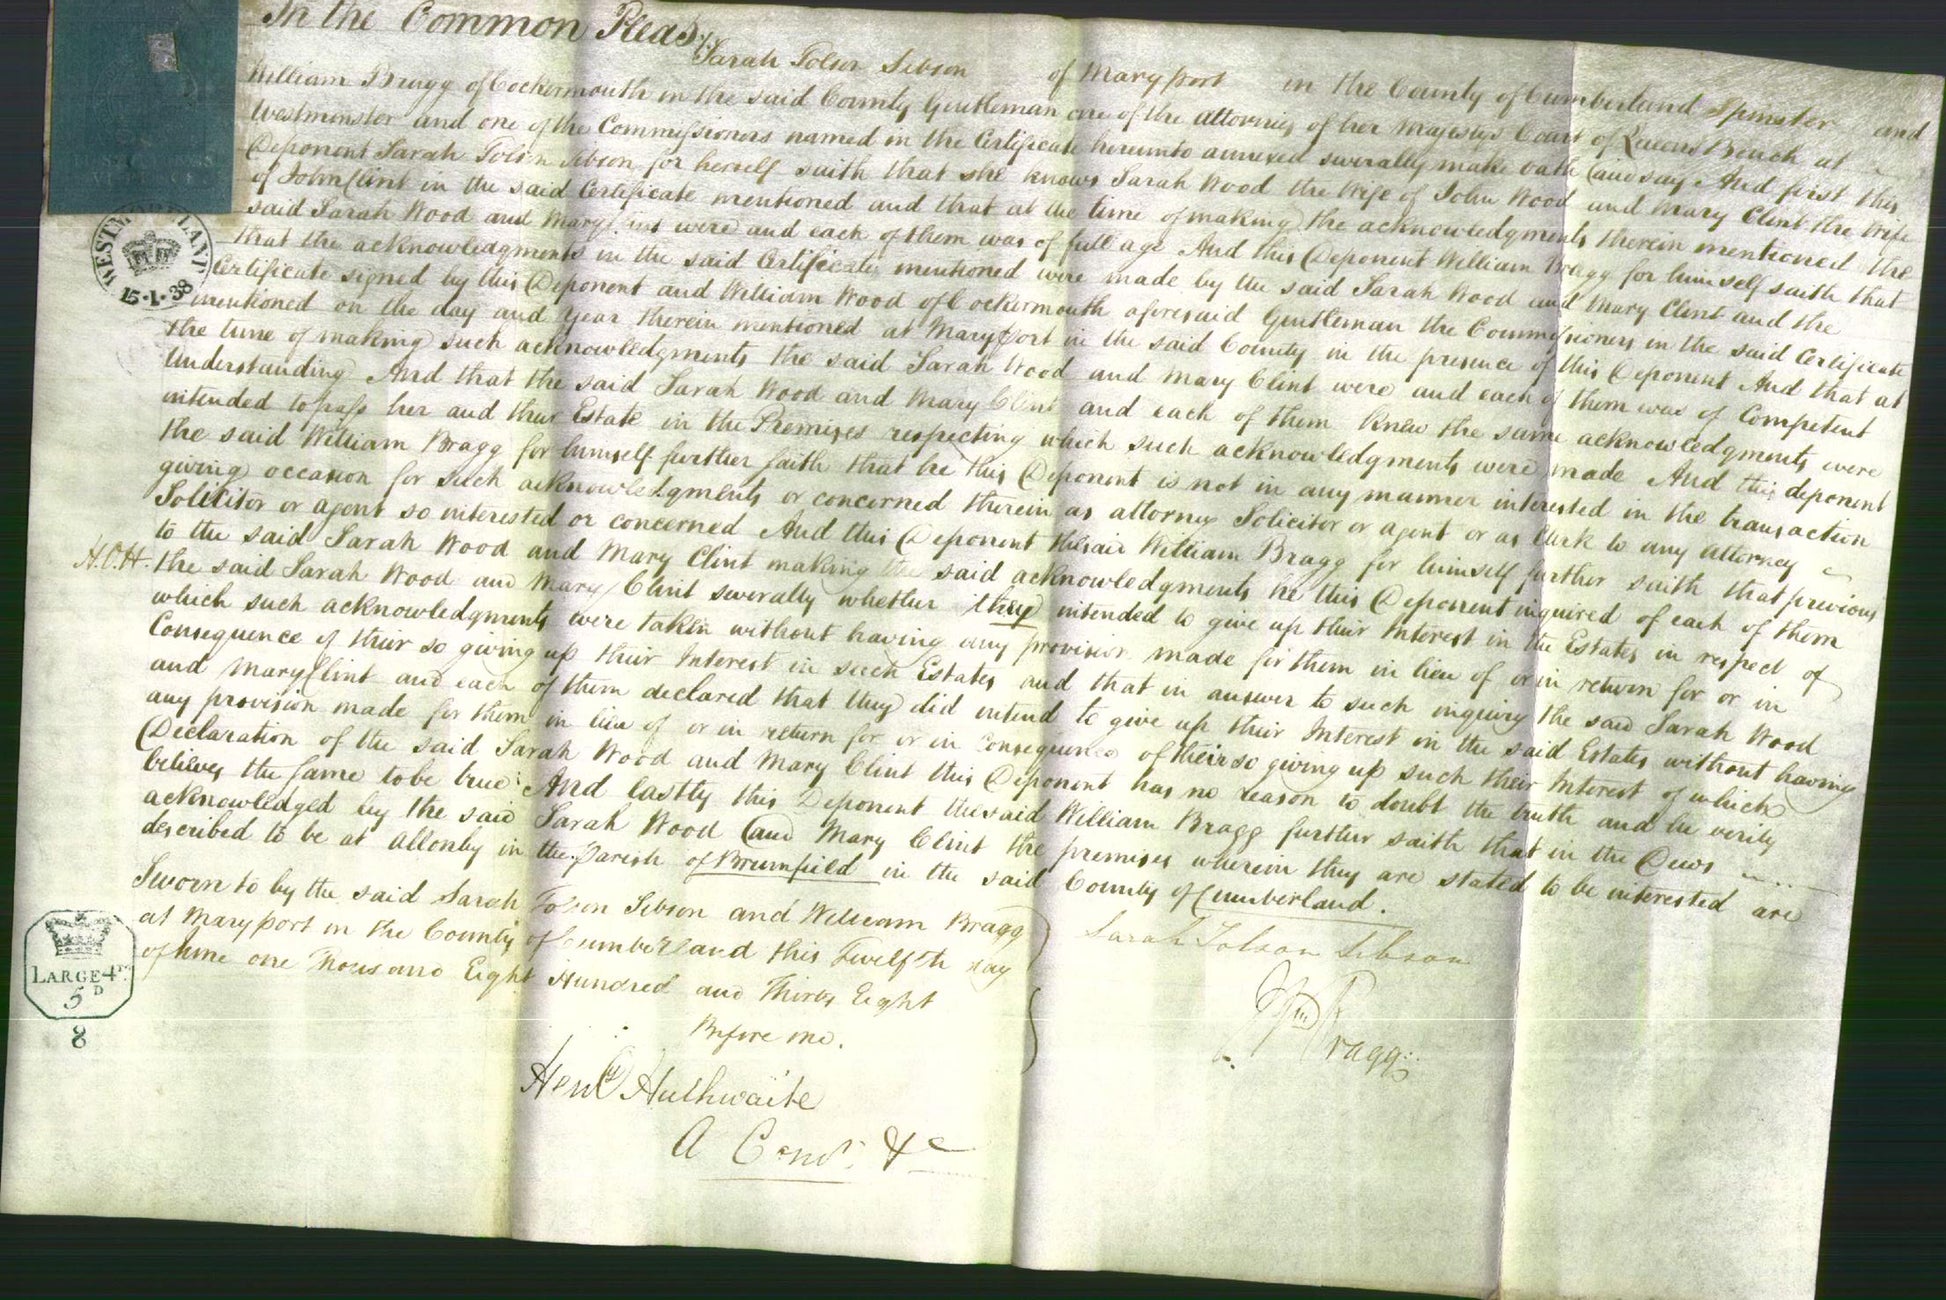 In the Common Pleas
Sarah Tolson Sibson of Maryport in the County of Cumberland Spinster and
William Bragg of Cockermouth in the said County Gentleman one of the attornies of her Majesty's Court of Queens Bench at
Westminster and one of the Commissioners named in the Certificate hereunto annexed severally make oath and say And first this
Deponent Sarah Tolson Sibson for herself saith that she knows Sarah Wood the Wife of John Wood and Mary Clint the Wife
of John Clint in the said Certificate mentioned and that at the time of making the acknowledgments therein mentioned the
said Sarah Wood and Mary Clint were and each of them was of full age And this Deponent William Bragg for himself saith that
that the acknowledgments in the said Certificate mentioned were made by the said Sarah Wood and Mary Clint and the
Certificate signed by this Deponent and William Wood of Cockermouth aforesaid Gentleman the Commissioners in the said Certificate
mentioned on the day and year therein mentioned at Maryport in the said County in the presence of this Deponent And that at
the time of making such acknowledgments the said Sarah Wood and Mary Clint were and each of them was of Competent
Understanding And that the said Sarah Wood and Mary Clint and each of them knew the same acknowledgments were
intended to pass her and their Estate in the Premises respecting which such acknowledgments were made And this deponent
the said William Bragg for himself further saith that he this Deponent is not in any manner interested in the transaction
giving occasion for such acknowledgments or concerned therein as attorney Solicitor or agent or as Clerk to any attorney
Solicitor or agent so interested or concerned And this Deponent the said William Bragg for himself further saith that previous
to the said Sarah Wood and Mary Clint making the said acknowledgments he this Deponent inquired of each of them
H.O.H. the said Sarah Wood and Mary Clint severally whether they intended to give up their Interest in the Estates in respect of
which such acknowledgments were taken without having any provision made for them in lieu of or in return for or in
Consequence of their so giving up their Interest in such Estates and that in answer to such inquiry the said Sarah Wood
and Mary Clint and each of them declared that they did intend to give up their Interest in the said Estates without having
any provision made for them in lieu of or in return for or in Consequence of their so giving up such their Interest of which
Declaration of the said Sarah Wood and Mary Clint this Deponent has no reason to doubt the truth and he verily
believes the same to be true And lastly this Deponent the said William Bragg further saith that in the Deed
acknowledged by the said Sarah Wood and Mary Clint the premises wherein they are stated to be interested are
described to be at Allonby in the Parish of Brumfield in the said County of Cumberland.
Sworn to by the said Sarah Tolson Sibson and William Bragg
at Maryport in the County of Cumberland this Twelfth day
of June one Thousand Eight Hundred and Thirty Eight
Before me.
Heny Huthwaite
A Comr. &c
Sarah Tolson Sibson
Wm Bragg
WESTMORELAND
15·1·38
LARGE 4
5 D
8